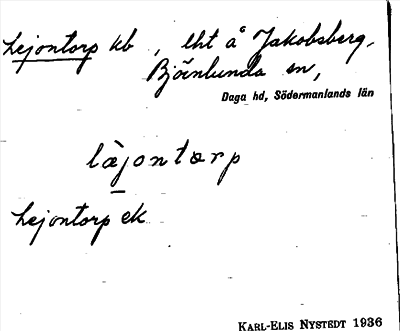 Lejontorp kb, lht å Jakobsberg,
Björnlunda sn,
Daga hd, Södermanlands län
læjontærp
Lejontorp ek
KARL-ELIS NYSTEDT 1936